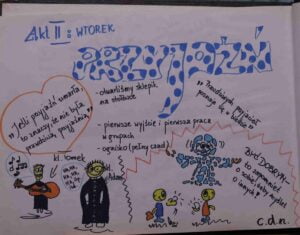 II : WTOREK
PRZYJAŹŃ
"Jeśli przyjaźń umarła,
to znaczy, że nie była
prawdziwą przyjaźnią"
- otworzyliśmy sklepik
na stołówce
- pierwsze wyjście i pierwsza praca
w grupach
- ognisko (pełny czad)
"Prawdziwych przyjaciół
poznaje się w biedzie"
kl. Tomek
kl.
Być DOBRYM
to zapomnieć
o sobie, żeby myśleć
o innych!
c.d.n.